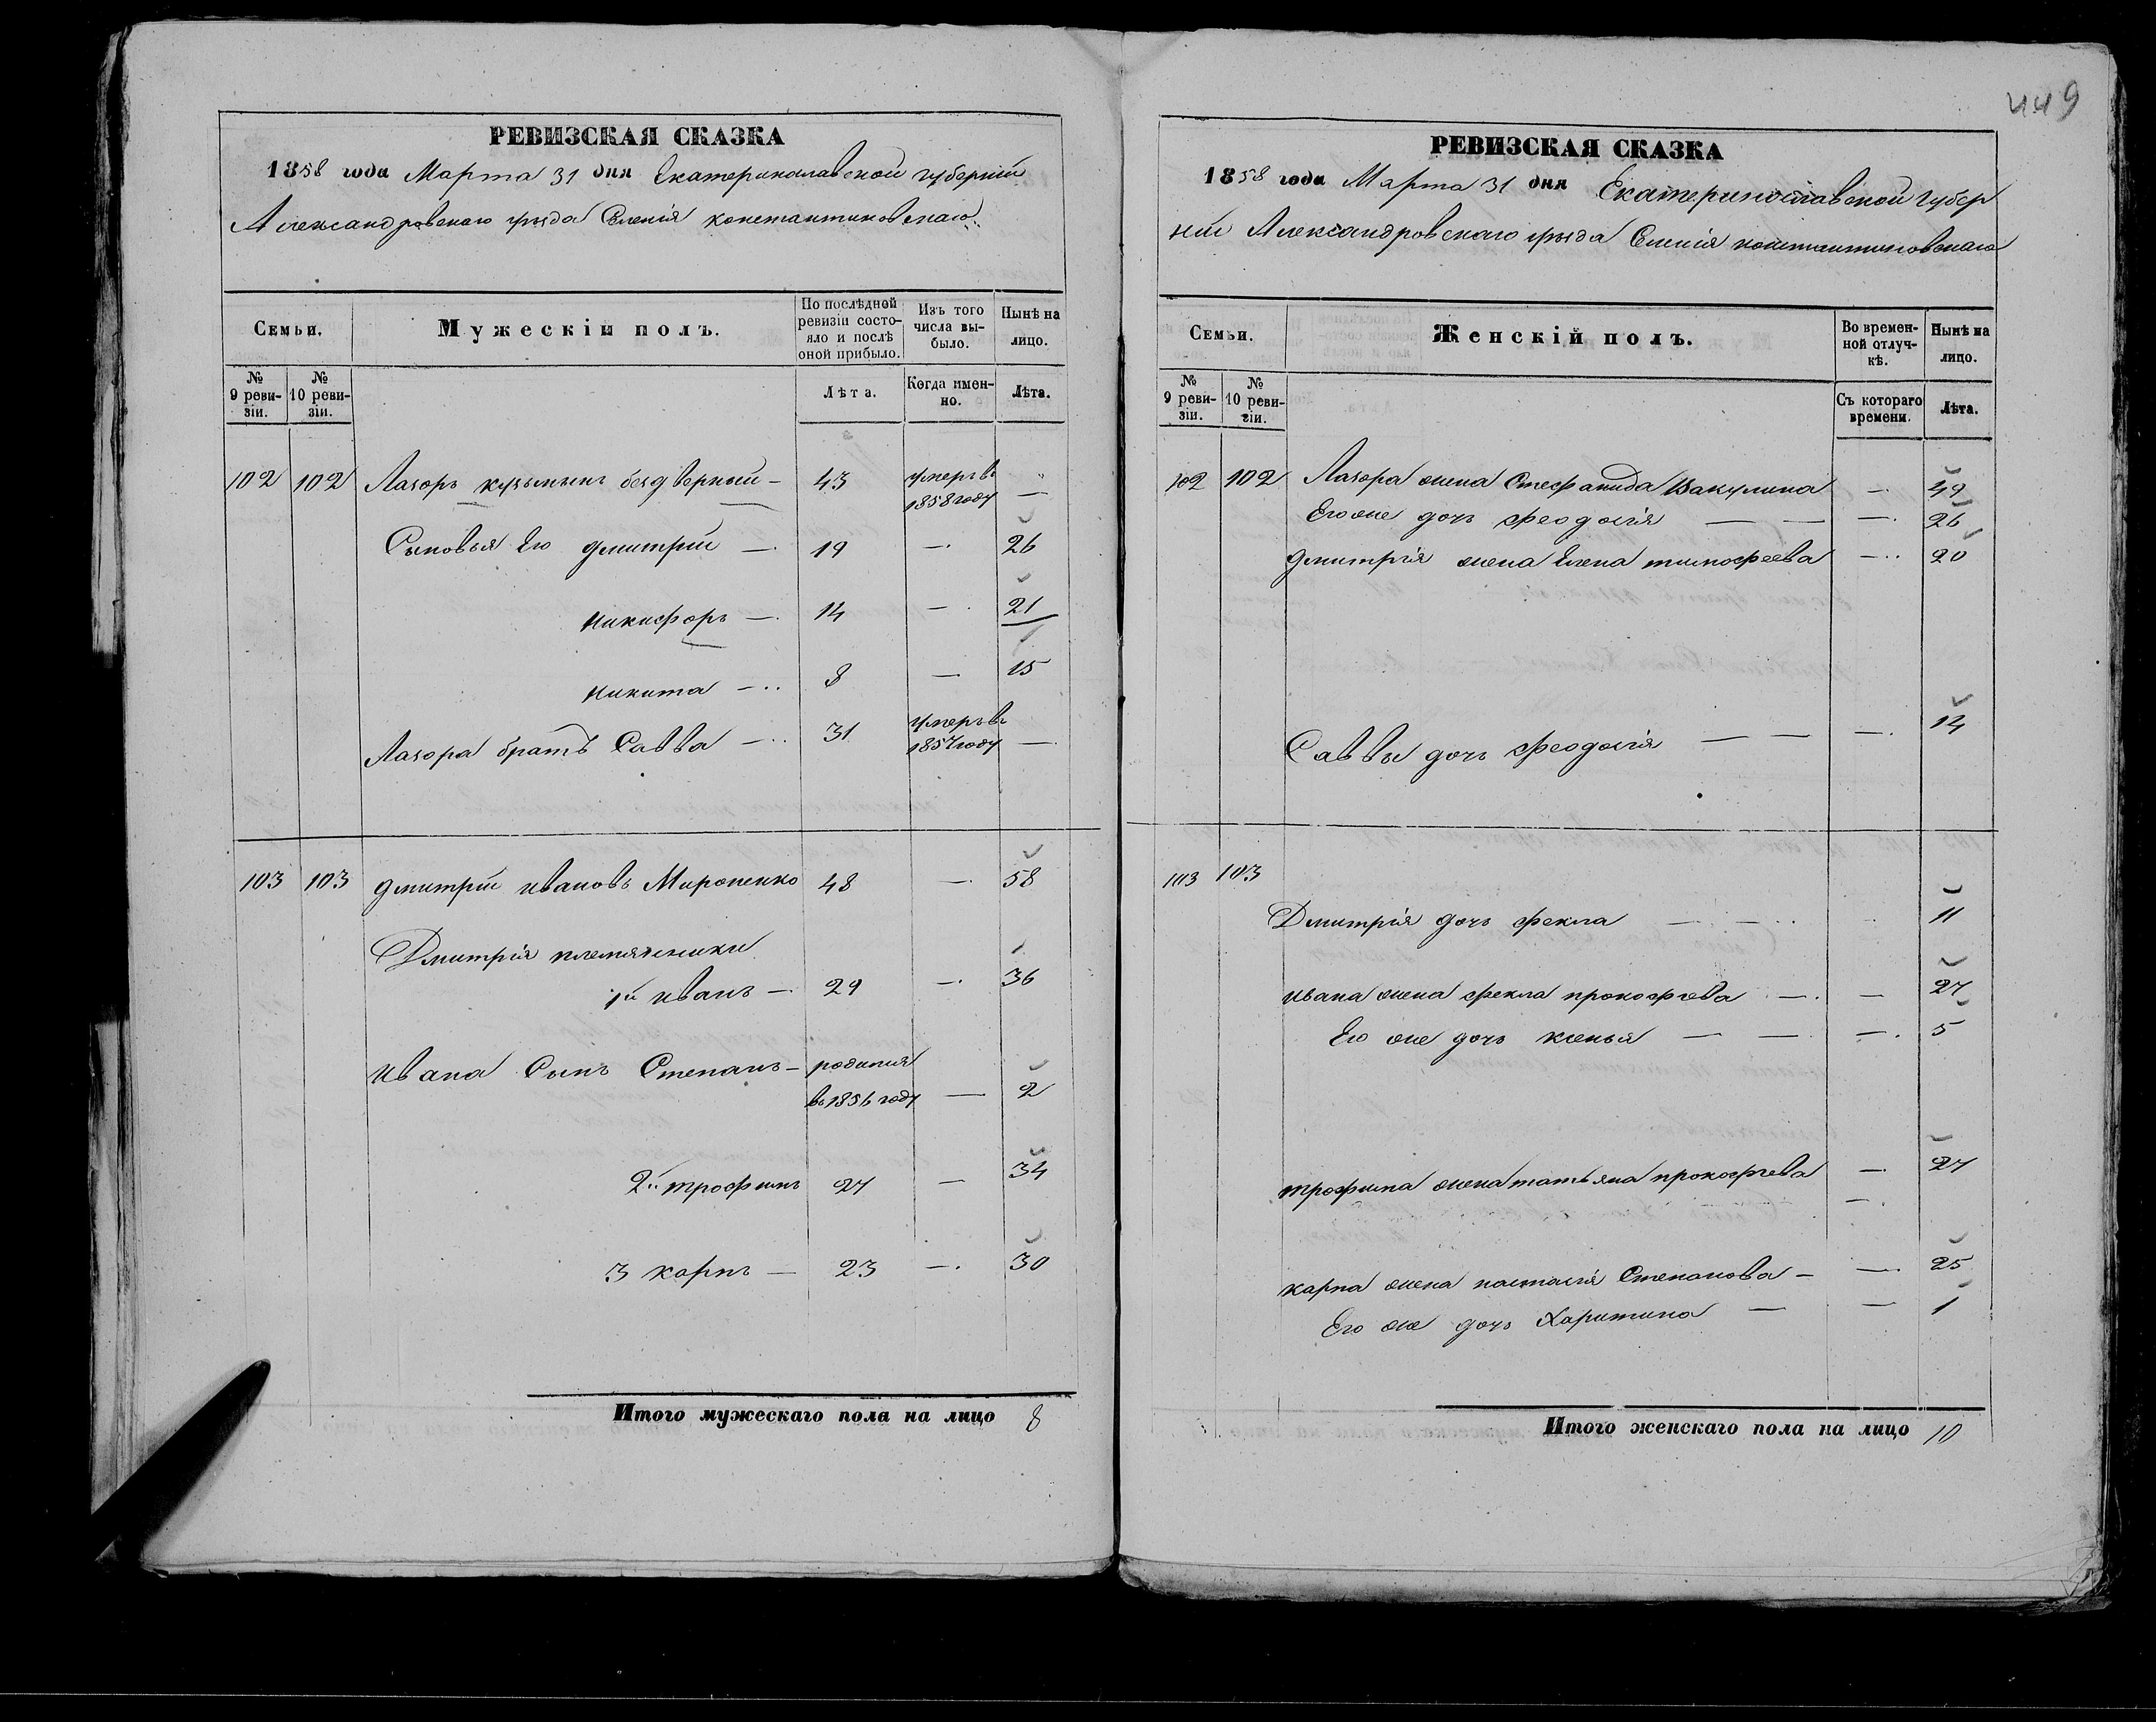 449
РЕВИЗСКАЯ СКАЗКА
1858 года Марта 31 дня Екатеринославской губернии
Александровского уезда Селенія константиновскаго
Семьи. Мужескій полъ. По послѣдней ревизіи состояло и послѣ оной прибыло. Изъ того числа выбыло. Нынѣ на лицо.
№ 9 ревизіи. № 10 ревизіи. Лѣта. Когда именно. Лѣта.
102 102 Лазоръ кузьминъ бездверный — 43 умеръ въ 1858 году —
Сыновья Его дмитрій — 19 — 26
никифоръ — 14 — 21
никита — 8 — 15
Лазора братъ Савва — 31 умеръ въ 1857 году —
103 103 дмитрій ивановъ Мироненко 48 — 58
Дмитрія племянники
1й иванъ — 29 — 36
ивана Сынъ Степанъ — родился
въ 1856 году — 2
2й трофимъ 27 — 34
3 карпъ — 23 — 30
Итого мужескаго пола на лицо 8
РЕВИЗСКАЯ СКАЗКА
1858 года Марта 31 дня Екатеринославской губер
ніи Александровскаго уезда Селенія константиновскаго
Семьи. Женскій полъ. Во временной отлучкѣ. Нынѣ на лицо.
№ 9 ревизіи. № 10 ревизіи. Съ котораго времени. Лѣта.
102 102 Лазора жена Стефанида Вакулина — 49
Его же дочь феодосія — — — 26
дмитрія жена Елена тимофеева — 20
Саввы дочь феодосія — — — 14
103 103
Дмитрія дочь фекла — — 11
ивана жена фекла прокофьева — — 27
Его же дочь ксенья — — — 5
трофима жена татьяна прокофьева — 27
карпа жена настасія Степанова — — 25
Его же дочь Харитина — — 1
Итого женскаго пола на лицо 10